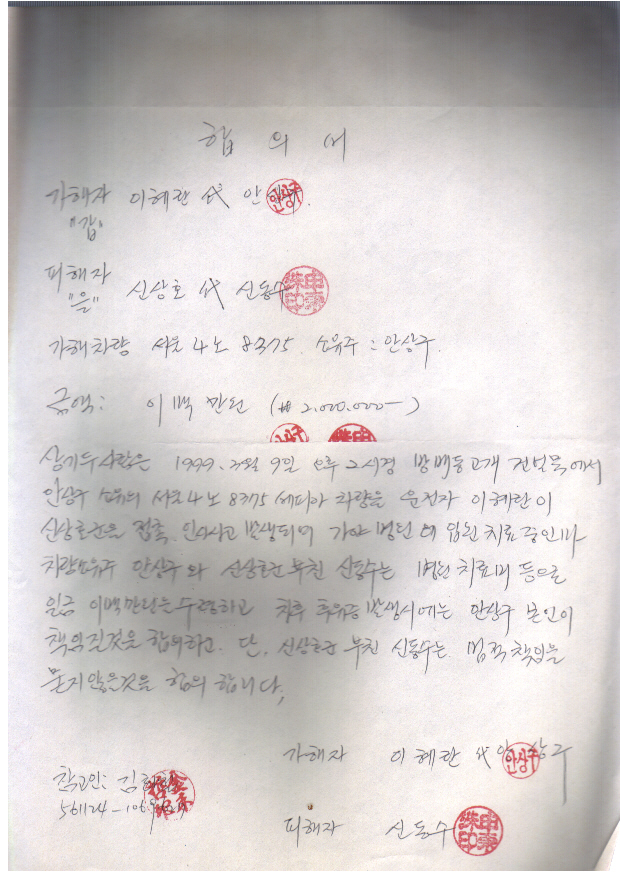 합 의 서
가해자 이혜란 代 안상구
"갑"
피해자
"을" 신상호 代 신동수
가해차량 서울 4노 8375. 소유주 : 안상구.
금액: 이백 만원 (₩ 2,000,000-)
상기 두 사람은 1999. 9일 오후 2시경 방배동 고개 건널목에서
안상구 소유의 서울 4노 8375 세피아 차량을 운전자 이혜란이
신상호군을 접촉, 인사사고 발생되어 병원에 입원 치료중인바
차량소유주 안상구와 신상호군 부친 신동수는 병원 치료비 등으로
일금 이백만원을 수령하고 차후 후유증 발생시에는 안상구 본인이
책임질것을 합의하고. 단, 신상호군 부친 신동수는 법적 책임을
묻지 않을것을 합의 합니다.
가해자 이혜란 代 안상구
참고인: 김
561124-106
피해자 신동수